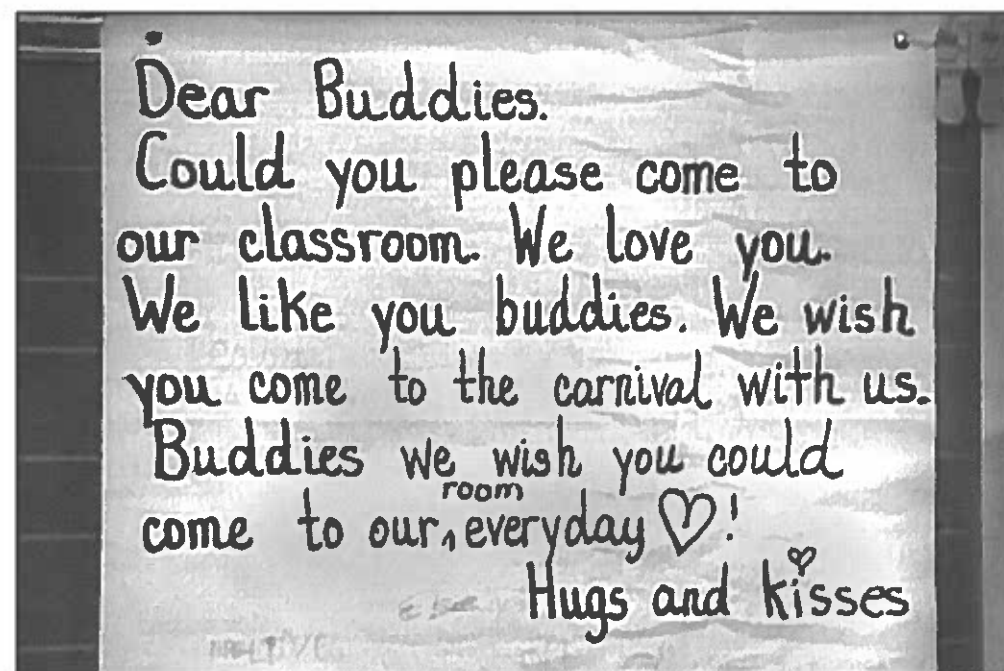 Dear Buddies.
Could you please come to
our classroom. We love you.
We like you buddies. We wish
you come to the carnival with us.
Buddies we wish you could
come to our room everyday ♡!
Hugs and kisses